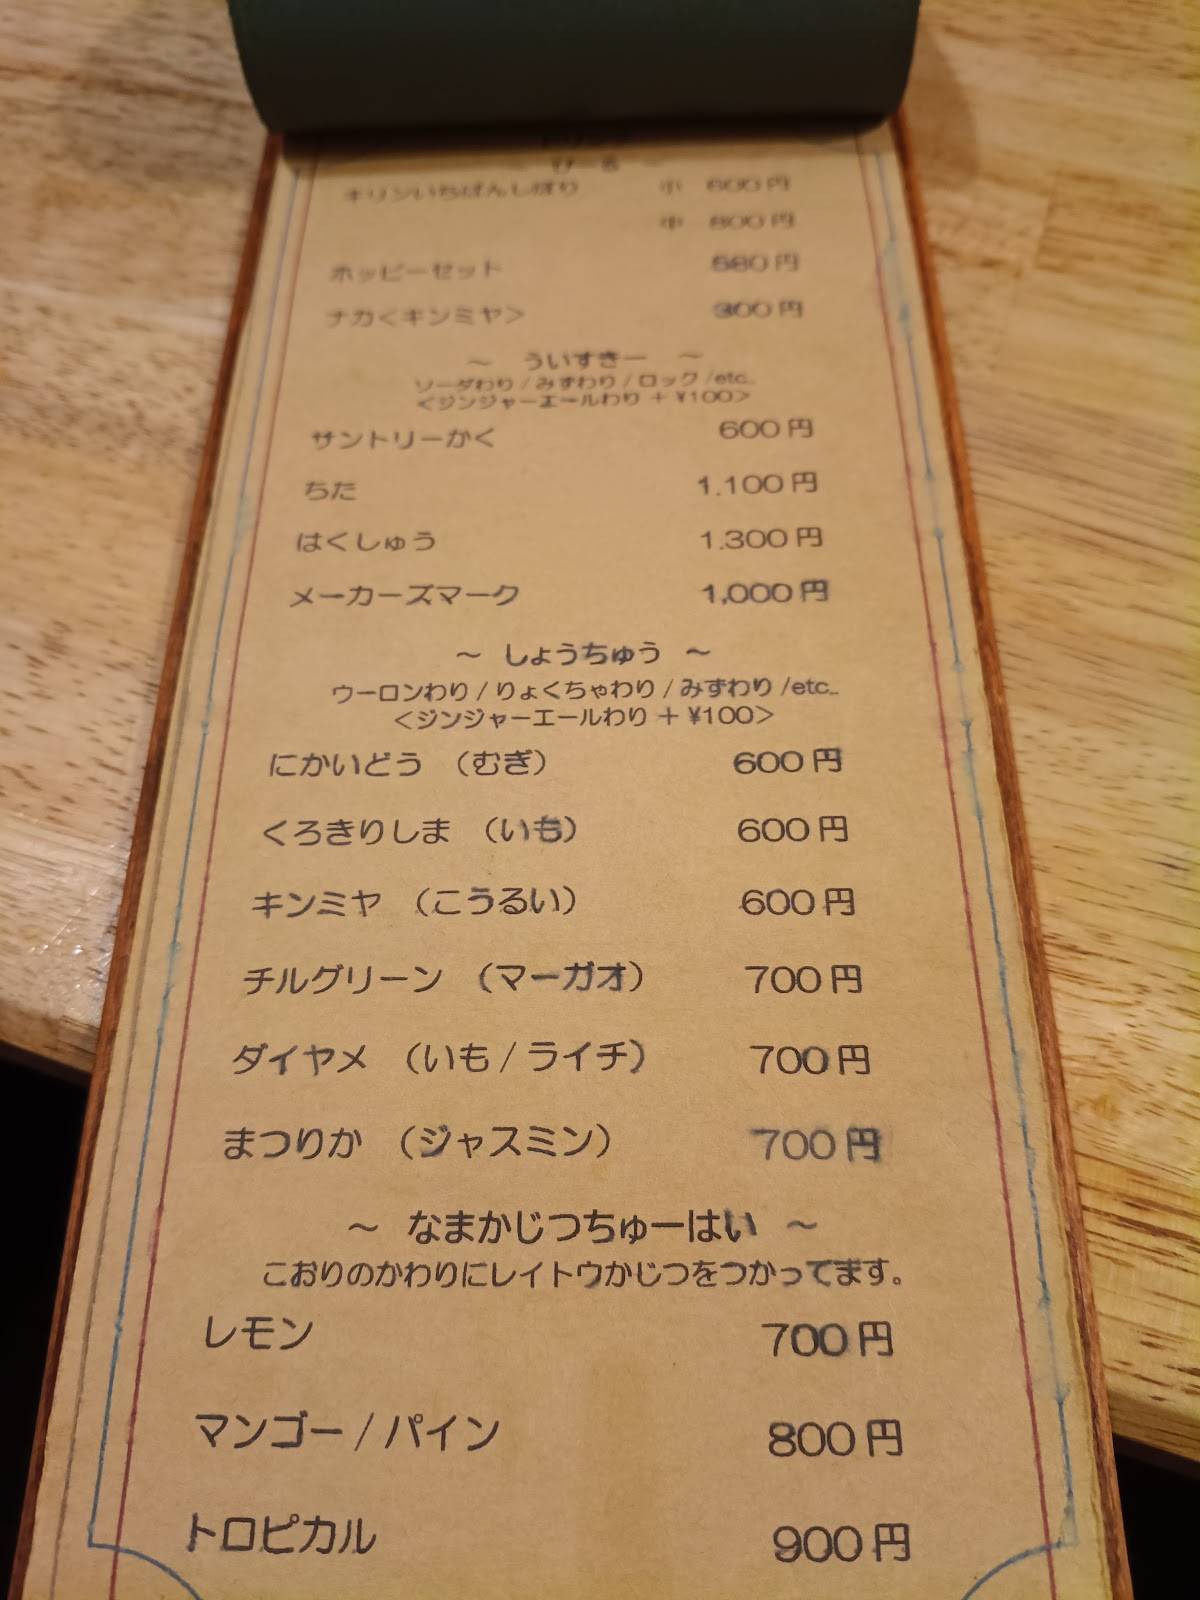 ～ びーる ～
キリンいちばんしぼり 小 600円
中 800円
ホッピーセット 580円
ナカ<キンミヤ> 300円
～ ういすきー ～
ソーダわり / みずわり / ロック /etc..
<ジンジャーエールわり + ¥100>
サントリーかく 600円
ちた 1,100円
はくしゅう 1,300円
メーカーズマーク 1,000円
～ しょうちゅう ～
ウーロンわり / りょくちゃわり / みずわり /etc..
<ジンジャーエールわり + ¥100>
にかいどう （むぎ） 600円
くろきりしま （いも） 600円
キンミヤ （こうるい） 600円
チルグリーン （マーガオ） 700円
ダイヤメ （いも / ライチ） 700円
まつりか （ジャスミン） 700円
～ なまかじつちゅーはい ～
こおりのかわりにレイトウかじつをつかってます。
レモン 700円
マンゴー / パイン 800円
トロピカル 900円